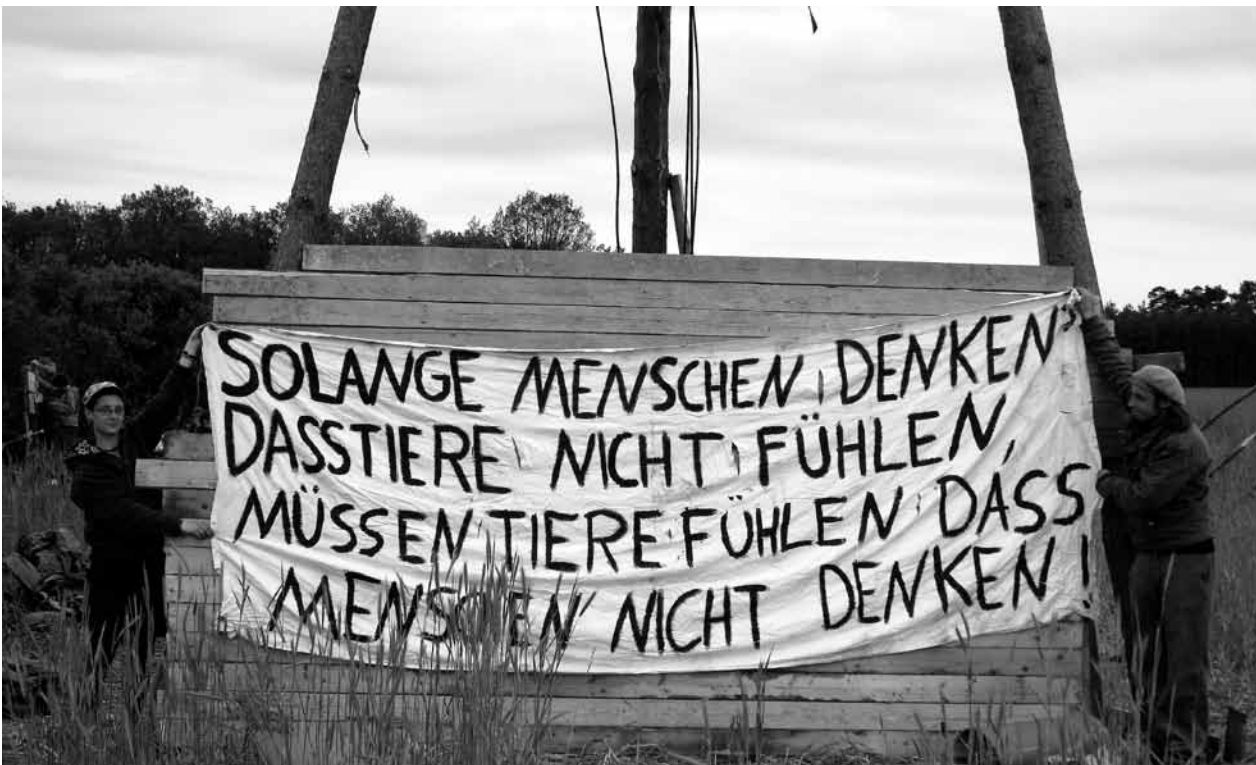 SOLANGE MENSCHEN DENKEN
DASSTIERE NICHT FÜHLEN,
MÜSSEN TIERE FÜHLEN DASS
MENSCHEN NICHT DENKEN!